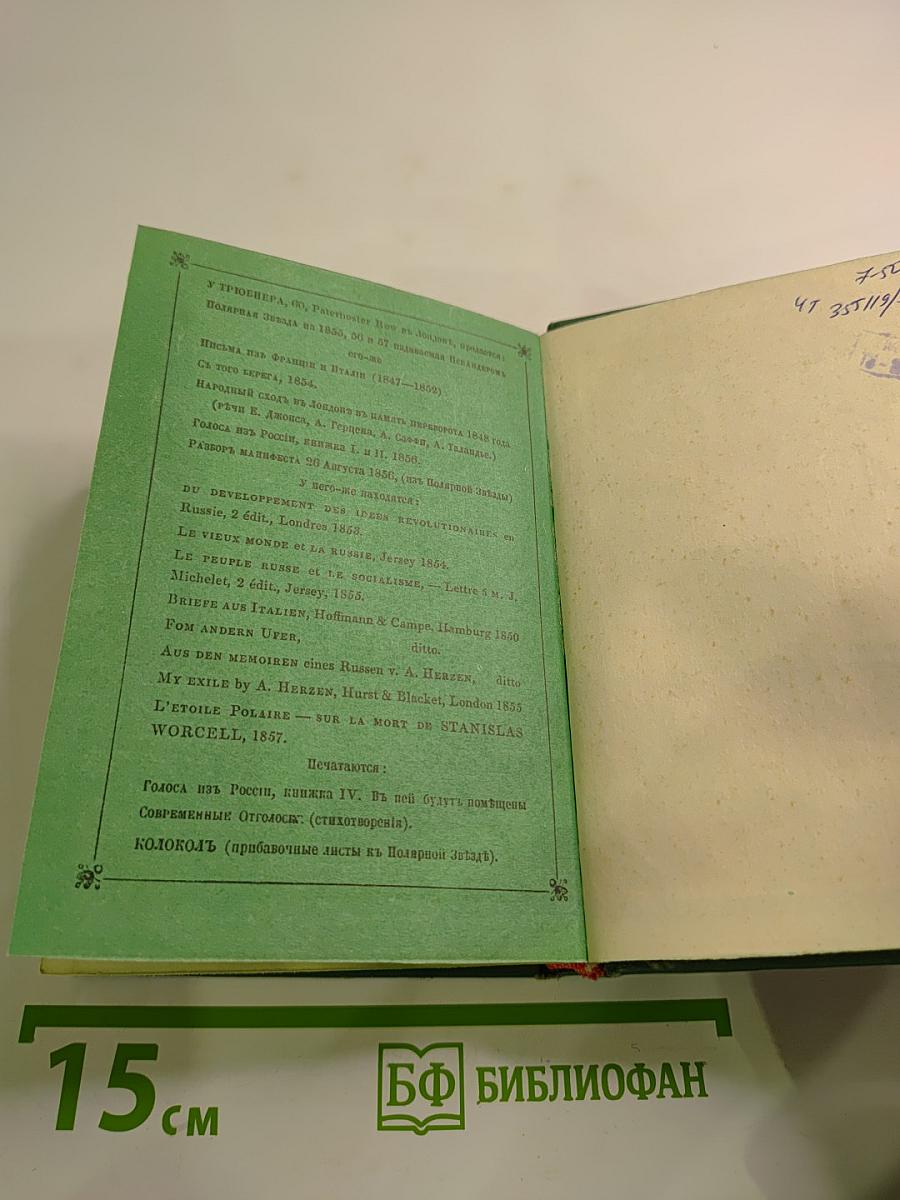 У ТРЮБНЕРА, 60, Paternoster Row въ Лондонѣ, продается:
Полярная Звѣзда на 1855, 56 и 57 издаваемая Искандеромъ
его-же
Письма изъ Франціи и Италіи (1847—1852)
Съ того берега, 1854.
Народный сходъ въ Лондонѣ въ память переворота 1848 года
(рѣчи Е. Джонса, А. Герцена, А. Саффи, А. Таландье.)
Голоса изъ Россіи, книжка I. и II. 1856.
Разборъ манифеста 26 Августа 1856, (изъ Полярной Звѣзды)
У него-же находятся:
DU DEVELOPPEMENT DES IDEES REVOLUTIONAIRES en
Russie, 2 édit., Londres 1853.
LE VIEUX MONDE et LA RUSSIE, Jersey 1854.
LE PEUPLE RUSSE et LE SOCIALISME, — Lettre à M. J.
Michelet, 2 édit., Jersey, 1855.
BRIEFE AUS ITALIEN, Hoffmann & Campe, Hamburg 1850
FOM ANDERN UFER, ditto.
AUS DEN MEMOIREN eines Russen v. A. HERZEN, ditto
MY EXILE by A. HERZEN, Hurst & Blacket, London 1855
L'ETOILE POLAIRE — SUR LA MORT DE STANISLAS
WORCELL, 1857.
Печатаются:
Голоса изъ Россіи, книжка IV. Въ ней будутъ помѣщены
Современные Отголоски: (стихотворенія).
КОЛОКОЛЪ (прибавочные листы къ Полярной Звѣздѣ).
7-50
ЧТ 355119/
15 см
БФ БИБЛИОФАН